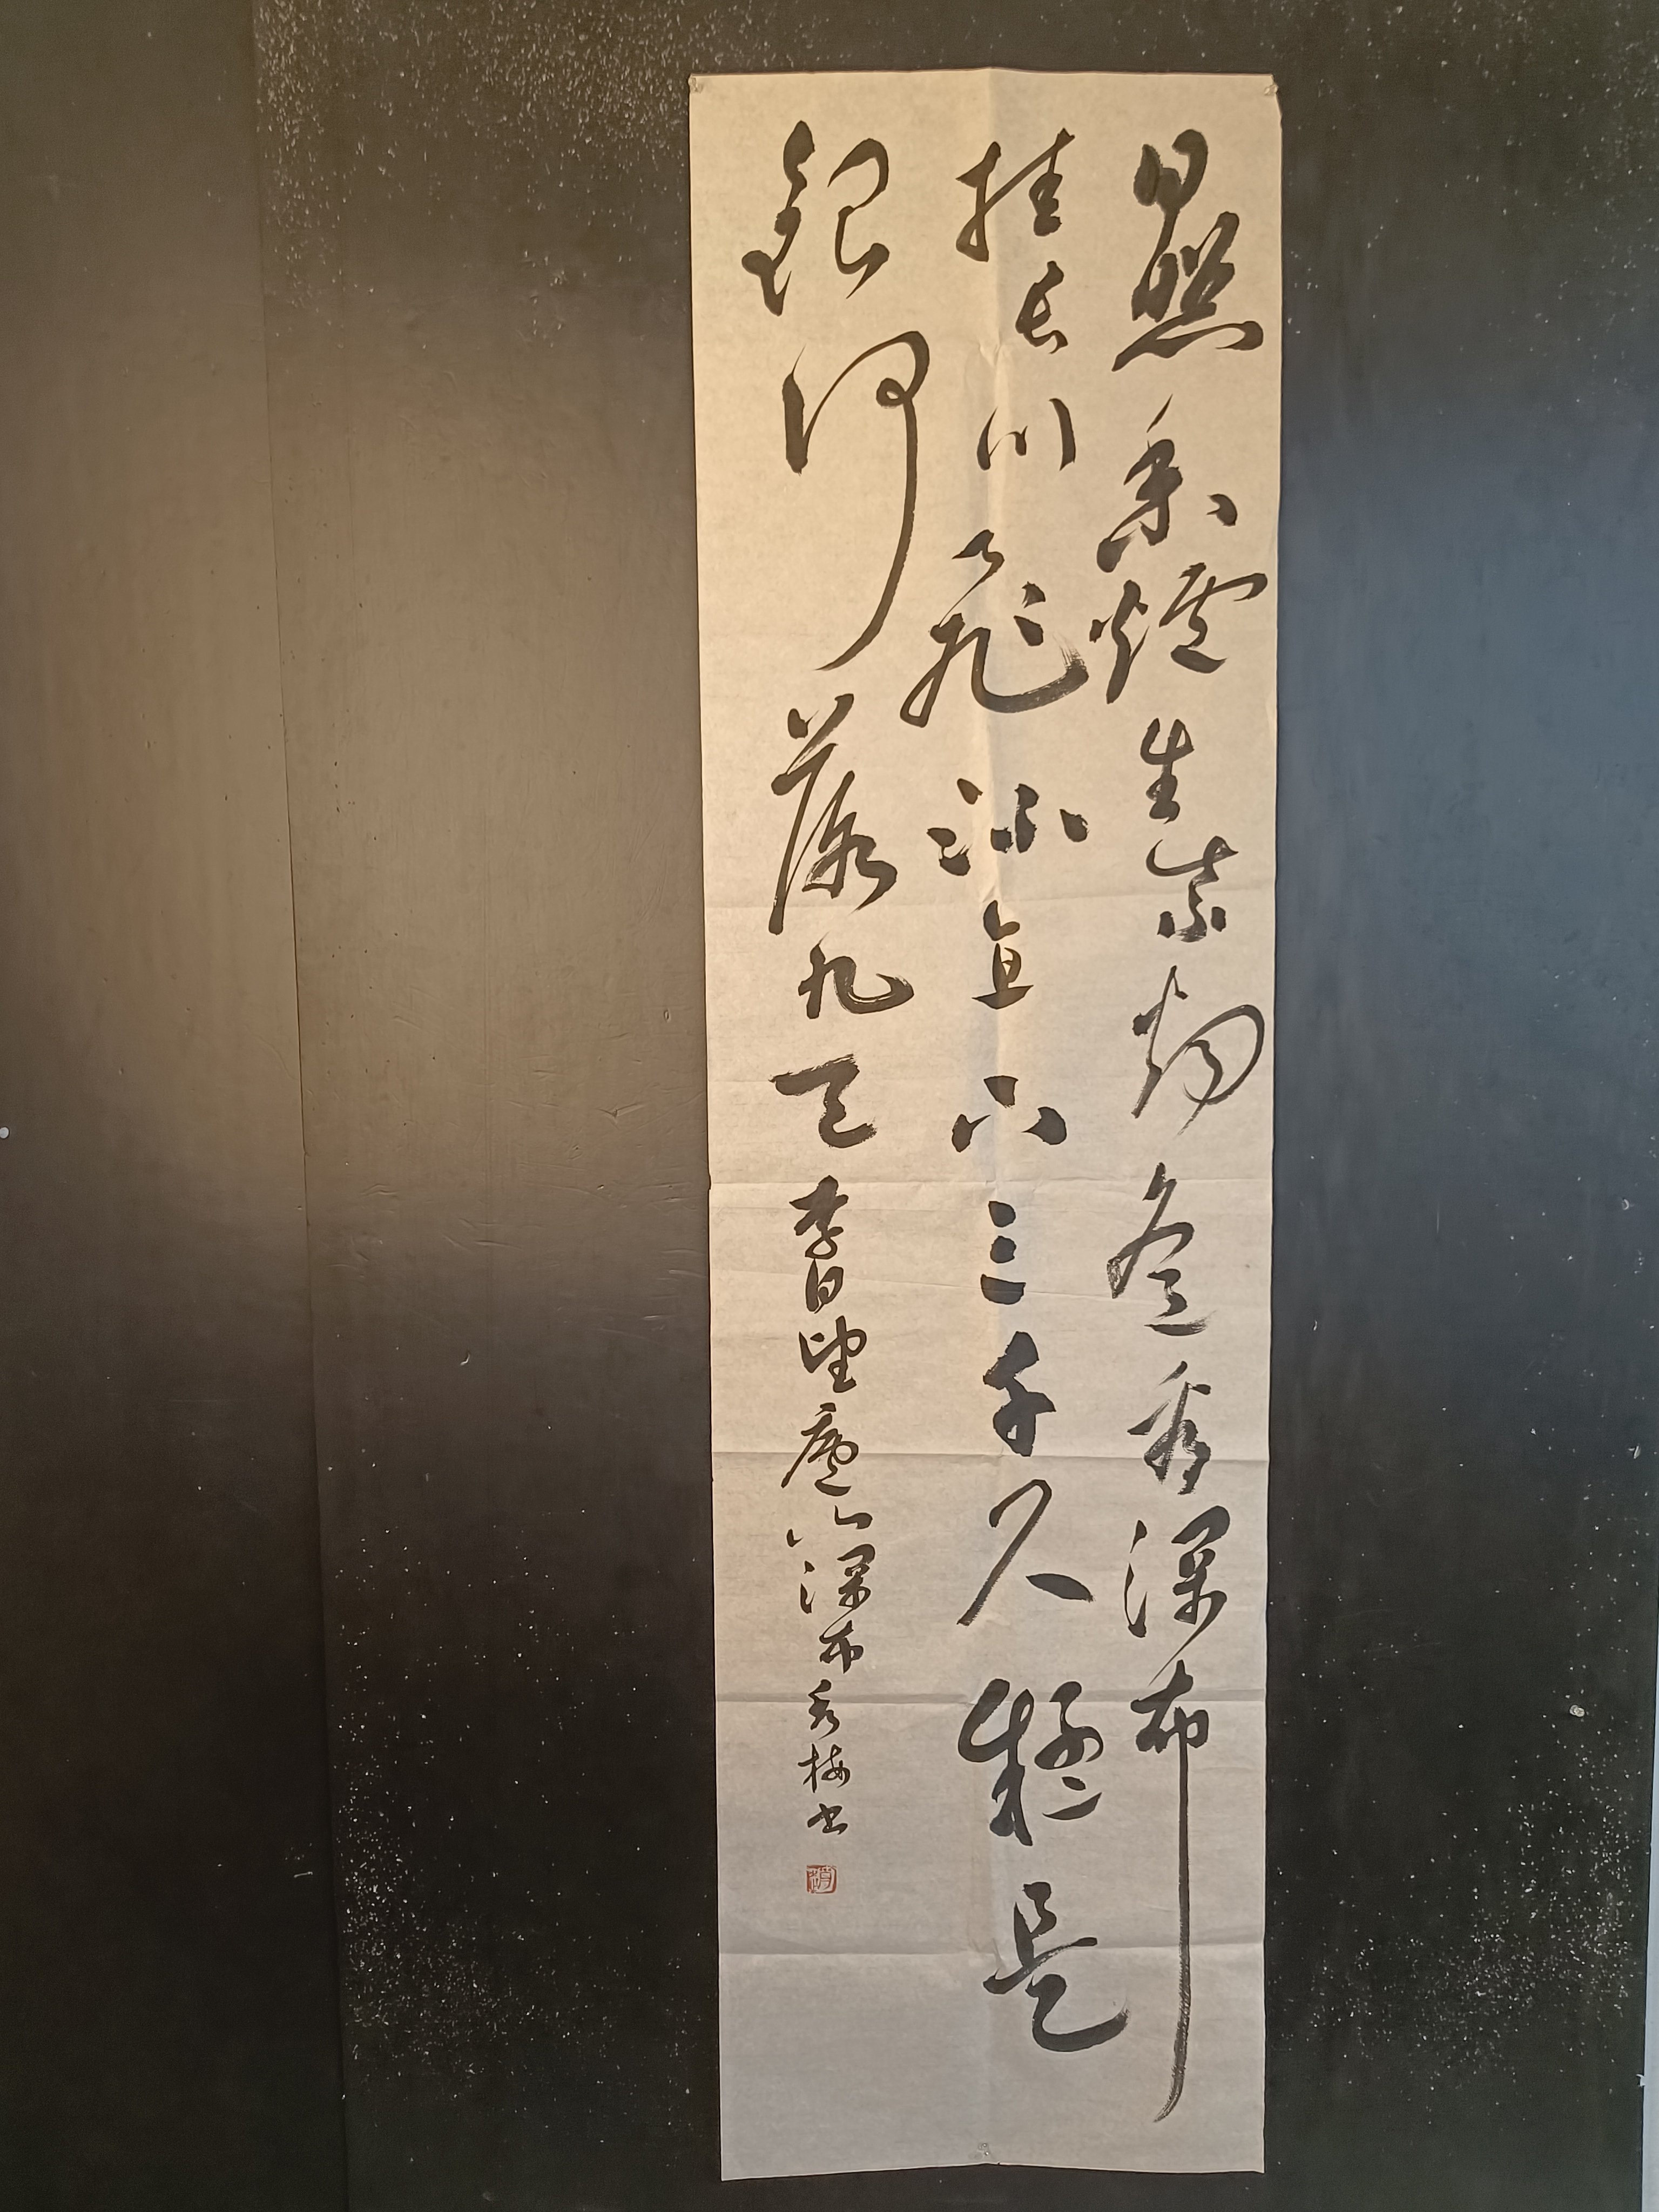 日照香爐生紫烟遙看瀑布
挂長川飛流直下三千尺疑是
銀河落九天 李白望廬山瀑布 秀梅书